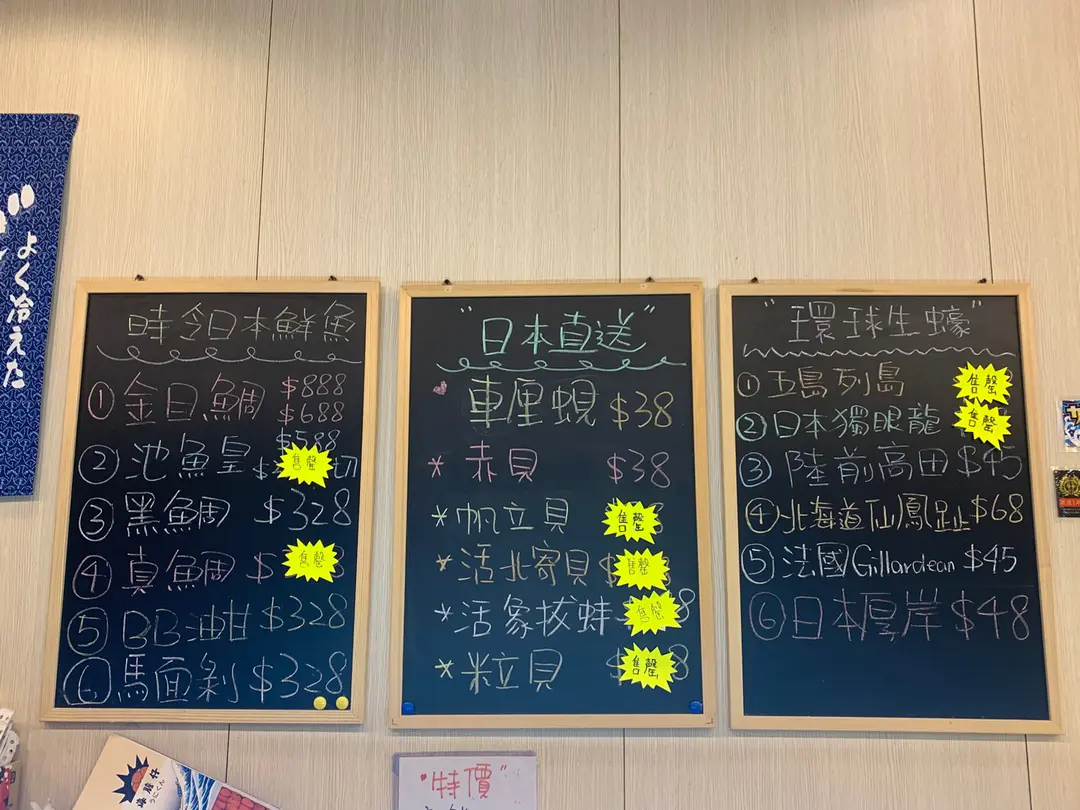 よく冷えた
時令日本鮮魚
① 金目鯛 $888
$688
② 池魚皇 $588
售罄 切
③ 黑魚周 $328
④ 真魚周 $ 售罄
⑤ BB油甘 $328
⑥ 馬面剁 $328
"日本直送"
車厘蜆 $38
* 赤貝 $38
* 帆立貝 售罄
* 活北寄貝 $ 售罄
* 活象拔蚌 售罄 8
* 粒立貝 售罄 8
"環球生蠔"
① 五島列島 售罄
② 日本獨眼龍 售罄
③ 陸前高田 $45
④ 北海道仙鳳趾 $68
⑤ 法國Gillardean $45
⑥ 日本厚岸 $48
うにくん
"特價"